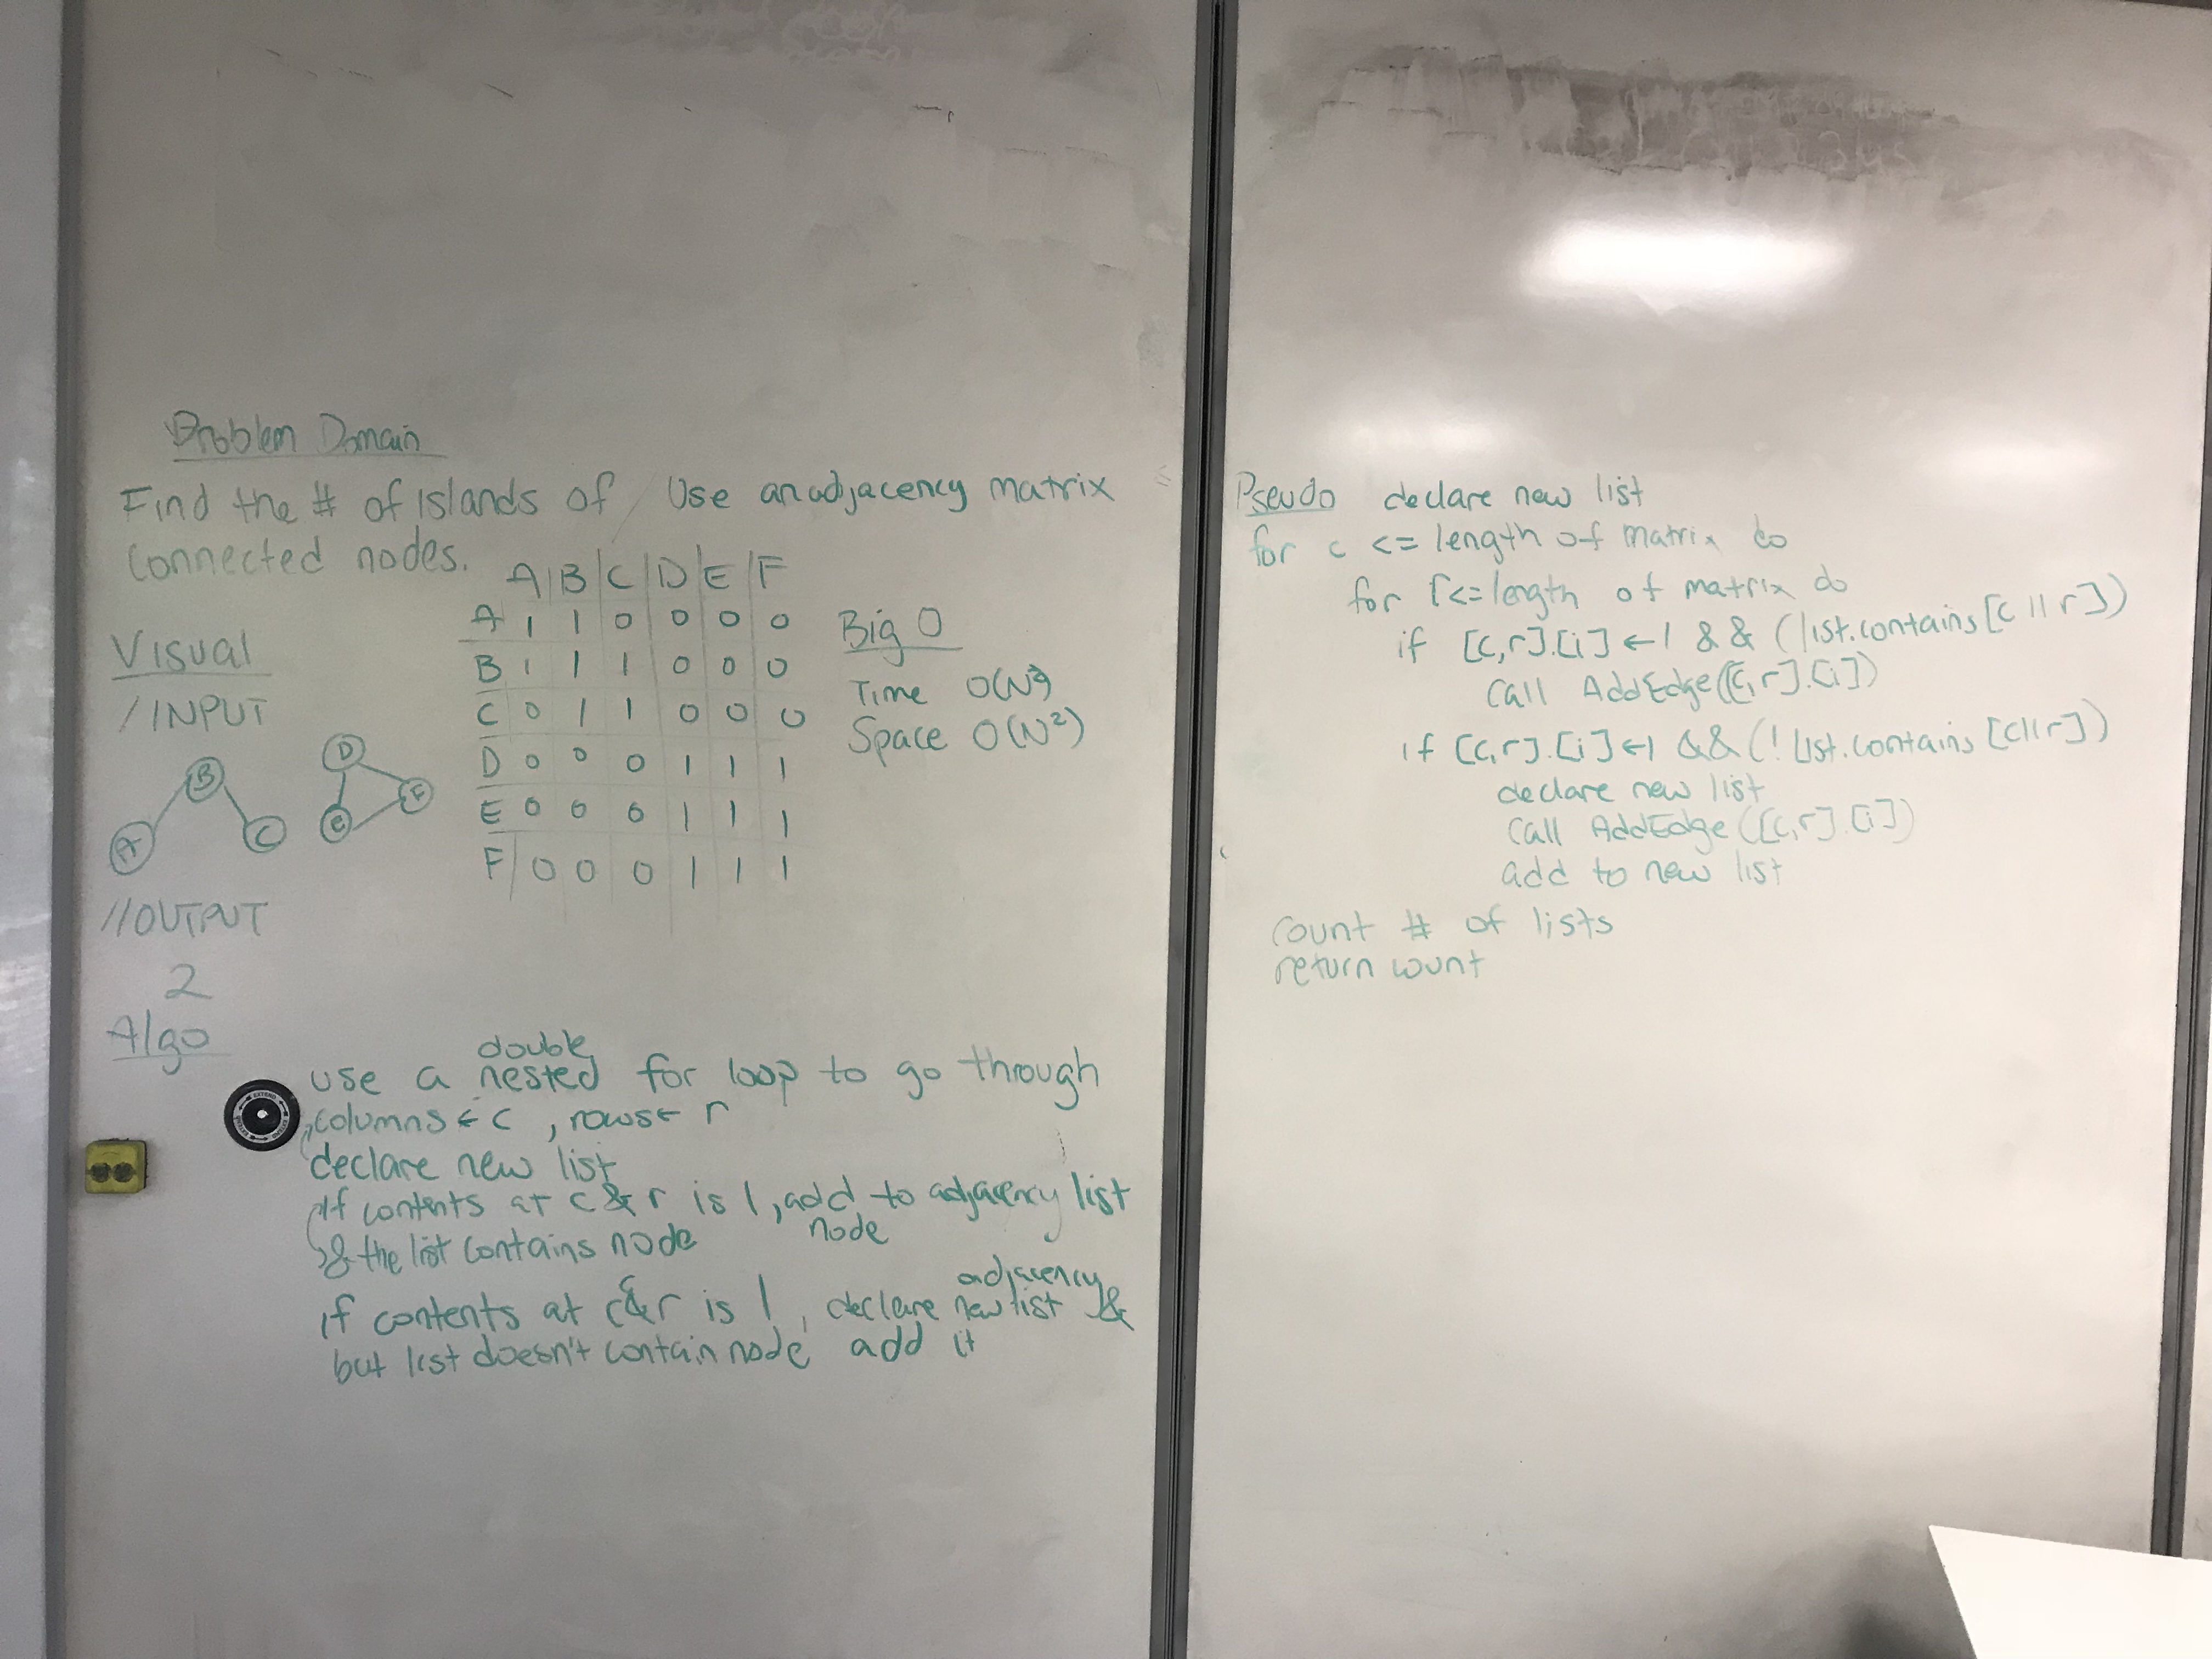 Problem Domain
Find the # of islands of / Use an adjacency matrix
connected nodes.
A|B|C|D|E|F
A 1 1 0 0 0 0
B 1 1 1 0 0 0
C 0 1 1 0 0 0
D 0 0 0 1 1 1
E 0 0 0 1 1 1
F 0 0 0 1 1 1
Big O
Time O(N²)
Space O(N²)
Visual
/INPUT
B
A
C
D
E
//OUTPUT
2
Algo
double
use a nested for loop to go through
columns ← c, rows ← r
declare new list
If contents at c & r is 1, add to adjacency list
& the list contains node
node
adjacency
if contents at c&r is 1, declare new list &
but list doesn't contain node add it
Pseudo declare new list
for c <= length of matrix do
for r<=length of matrix do
if [c,r].[i] ← 1 && (list.contains[c || r])
Call AddEdge([c,r].[i])
if [c,r].[i] ← 1 && (! list.contains [c||r])
declare new list
Call AddEdge([c,r].[i])
add to new list
count # of lists
return count